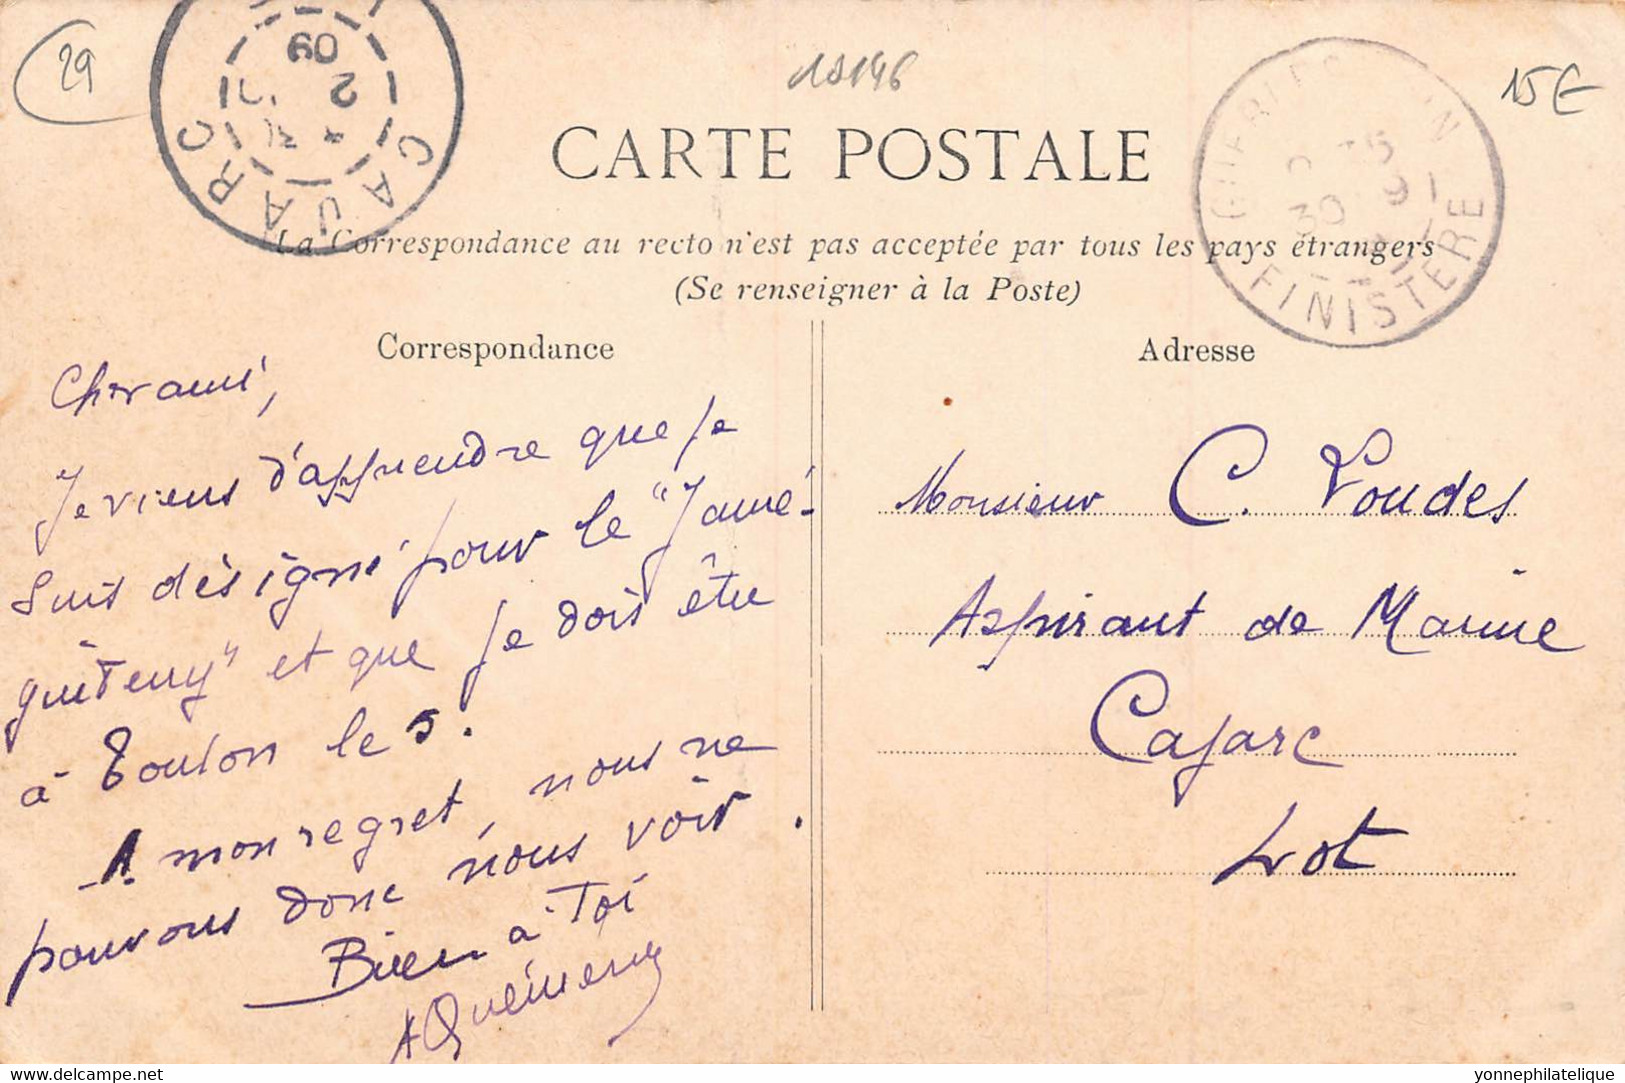 29
CAJARC
2
09
18146
15€
FINISTERE
30
CARTE POSTALE
La Correspondance au recto n'est pas acceptée par tous les pays étrangers
(Se renseigner à la Poste)
Correspondance
Adresse
Cher ami,
Je viens d'apprendre que je
suis désigné pour le "Jauré-
guiberry" et que je dois être
à Toulon le 5.
A mon regret, nous ne
pouvons donc nous voir.
Bien à Toi
A Quémeneur
Monsieur C. Voudes
Aspirant de Marine
Cajarc
Lot
yonnephilatelique